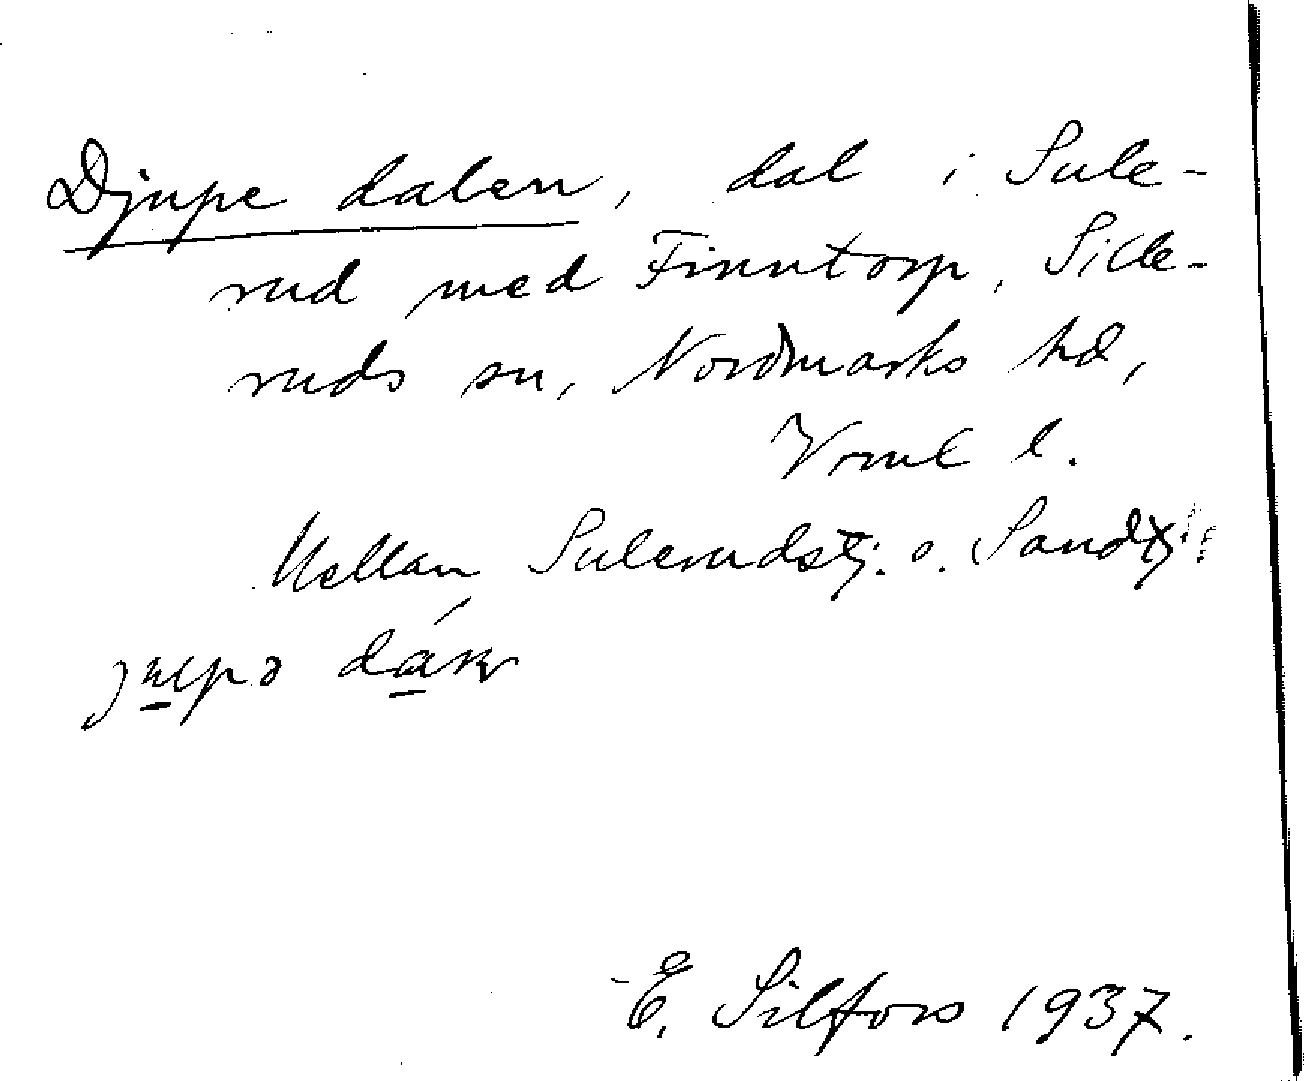 Djupe dalen, dal i Sule-
rud med Finntorp, Sille-
ruds sn, Nordmarks hd,
Vrml l.
Mellan Sulerudstj. o. Sandtj.
E. Silfors 1937.